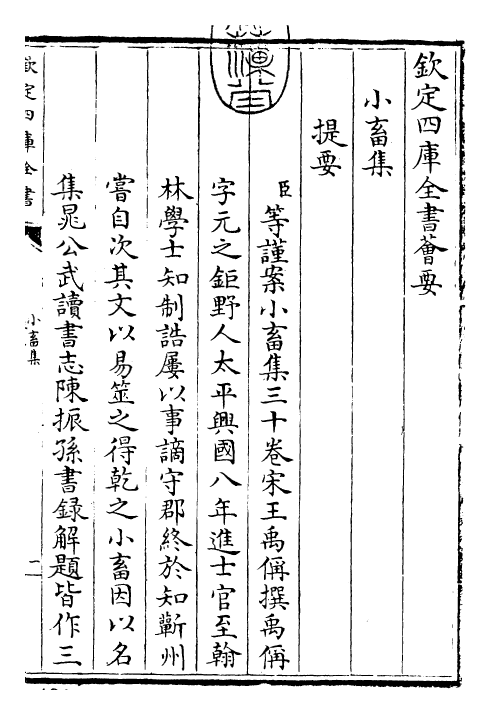 欽定四庫全書薈要
小畜集
提要
臣等謹案小畜集三十卷宋王禹偁撰禹偁
字元之鉅野人太平興國八年進士官至翰
林學士知制誥屢以事謫守郡終於知蘄州
嘗自次其文以易筮之得乾之小畜因以名
集晁公武讀書志陳振孫書録解題皆作三
欽定四庫全書
小畜集
二